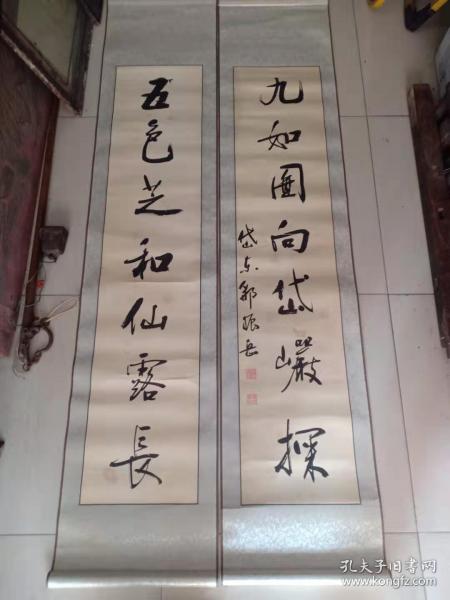 九如圖向岱巖探
岱東郭振岳
五色芝和仙露長
孔夫子旧书网
www.kongfz.com